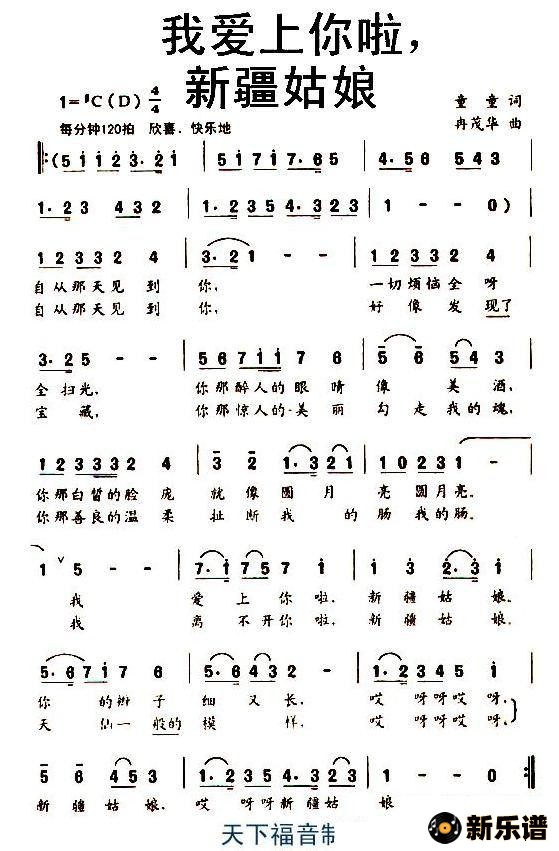 我爱上你啦，
新疆姑娘
1=♯C(D) 4/4
童童 词
每分钟120拍 欣喜、快乐地
冉茂华 曲
‖:(5 1 1 2 3·2 1 | 5 1 7 1 7·6 5 |
1·2 3 4 3 2 | 1·2 3 5 4·3 2 3 | 1 - - 0)
1 2 3 3 2 4 | 3·2 1 - - | 1 2 3 3 2 4
自从那天见到你， 一切烦恼全呀
自从那天见到你， 好像发现了
3·2 5 - - | 5 6 7 1 1 7 6 | 5 6 5 4 5
全扫光， 你那醉人的眼睛像美酒，
宝藏， 你那惊人的美丽勾走我的魂，
1 2 3 3 3 2 4 | 3 2 1·3 2 1 | 1 0 2 3 1 -
你那白皙的脸庞就像圆月亮圆月亮。
你那善良的温柔扯断我的肠我的肠。
1 5 - - | 7·1 7 5 7 1 | 1 3 2·3 1
我爱上你啦，新疆姑娘。
我离不开你啦，新疆姑娘。
5·6 7 1 7 6 | 5·4 5 6 5 | 1·2 3 4 5 1
你的辫子细又长，哎呀呀哎呀，
天仙一般的模样，哎呀呀哎呀，
5 6 4 5 3 | 1·2 3 4 5 3 2 | 1 - - :‖
新疆姑娘，哎呀呀新疆姑娘
新乐谱
天下福音制